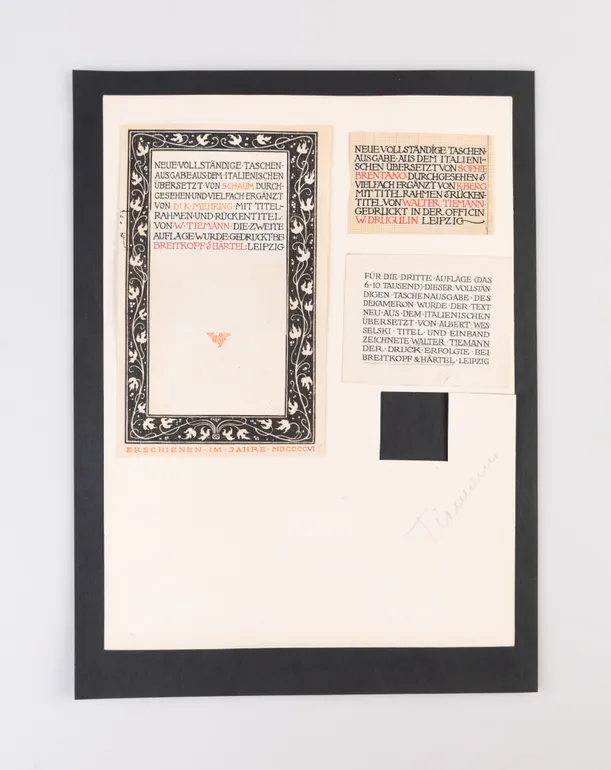 NEUE VOLLSTÄNDIGE TASCHEN-
AUSGABE AUS DEM ITALIENISCHEN
ÜBERSETZT · VON SCHAUM DURCH-
GESEHEN UND VIELFACH ERGÄNZT
VON · DR K · MEHRING · MIT TITEL-
RAHMEN · UND · RÜCKENTITEL
VON · W · TIEMANN · DIE ZWEITE
AUFLAGE WURDE GEDRUCKT BEI
BREITKOPF & HÄRTEL · LEIPZIG
ERSCHIENEN · IM · JAHRE · MDCCCCVI
NEUE VOLLSTÄNDIGE TASCHEN-
AUSGABE · AUS DEM ITALIENI-
SCHEN ÜBERSETZT VON SOPHIE
BRENTANO DURCHGESEHEN &
VIELFACH ERGÄNZT VON K·BERG
MIT TITELRAHMEN & RÜCKEN-
TITEL VON WALTER TIEMANN
GEDRUCKT IN DER OFFICIN
W. DRUGULIN LEIPZIG
FÜR · DIE · DRITTE · AUFLAGE · (DAS
6-10 TAUSEND) DIESER VOLLSTÄN
DIGEN TASCHENAUSGABE · DES
DEKAMERON · WURDE · DER TEXT
NEU · AUS · DEM · ITALIENISCHEN
ÜBERSETZT · VON · ALBERT WES
SELSKI · TITEL · UND · EINBAND
ZEICHNETE · WALTER · TIEMANN
DER · DRUCK · ERFOLGTE · BEI
BREITKOPF & HÄRTEL · LEIPZIG
Tiemann